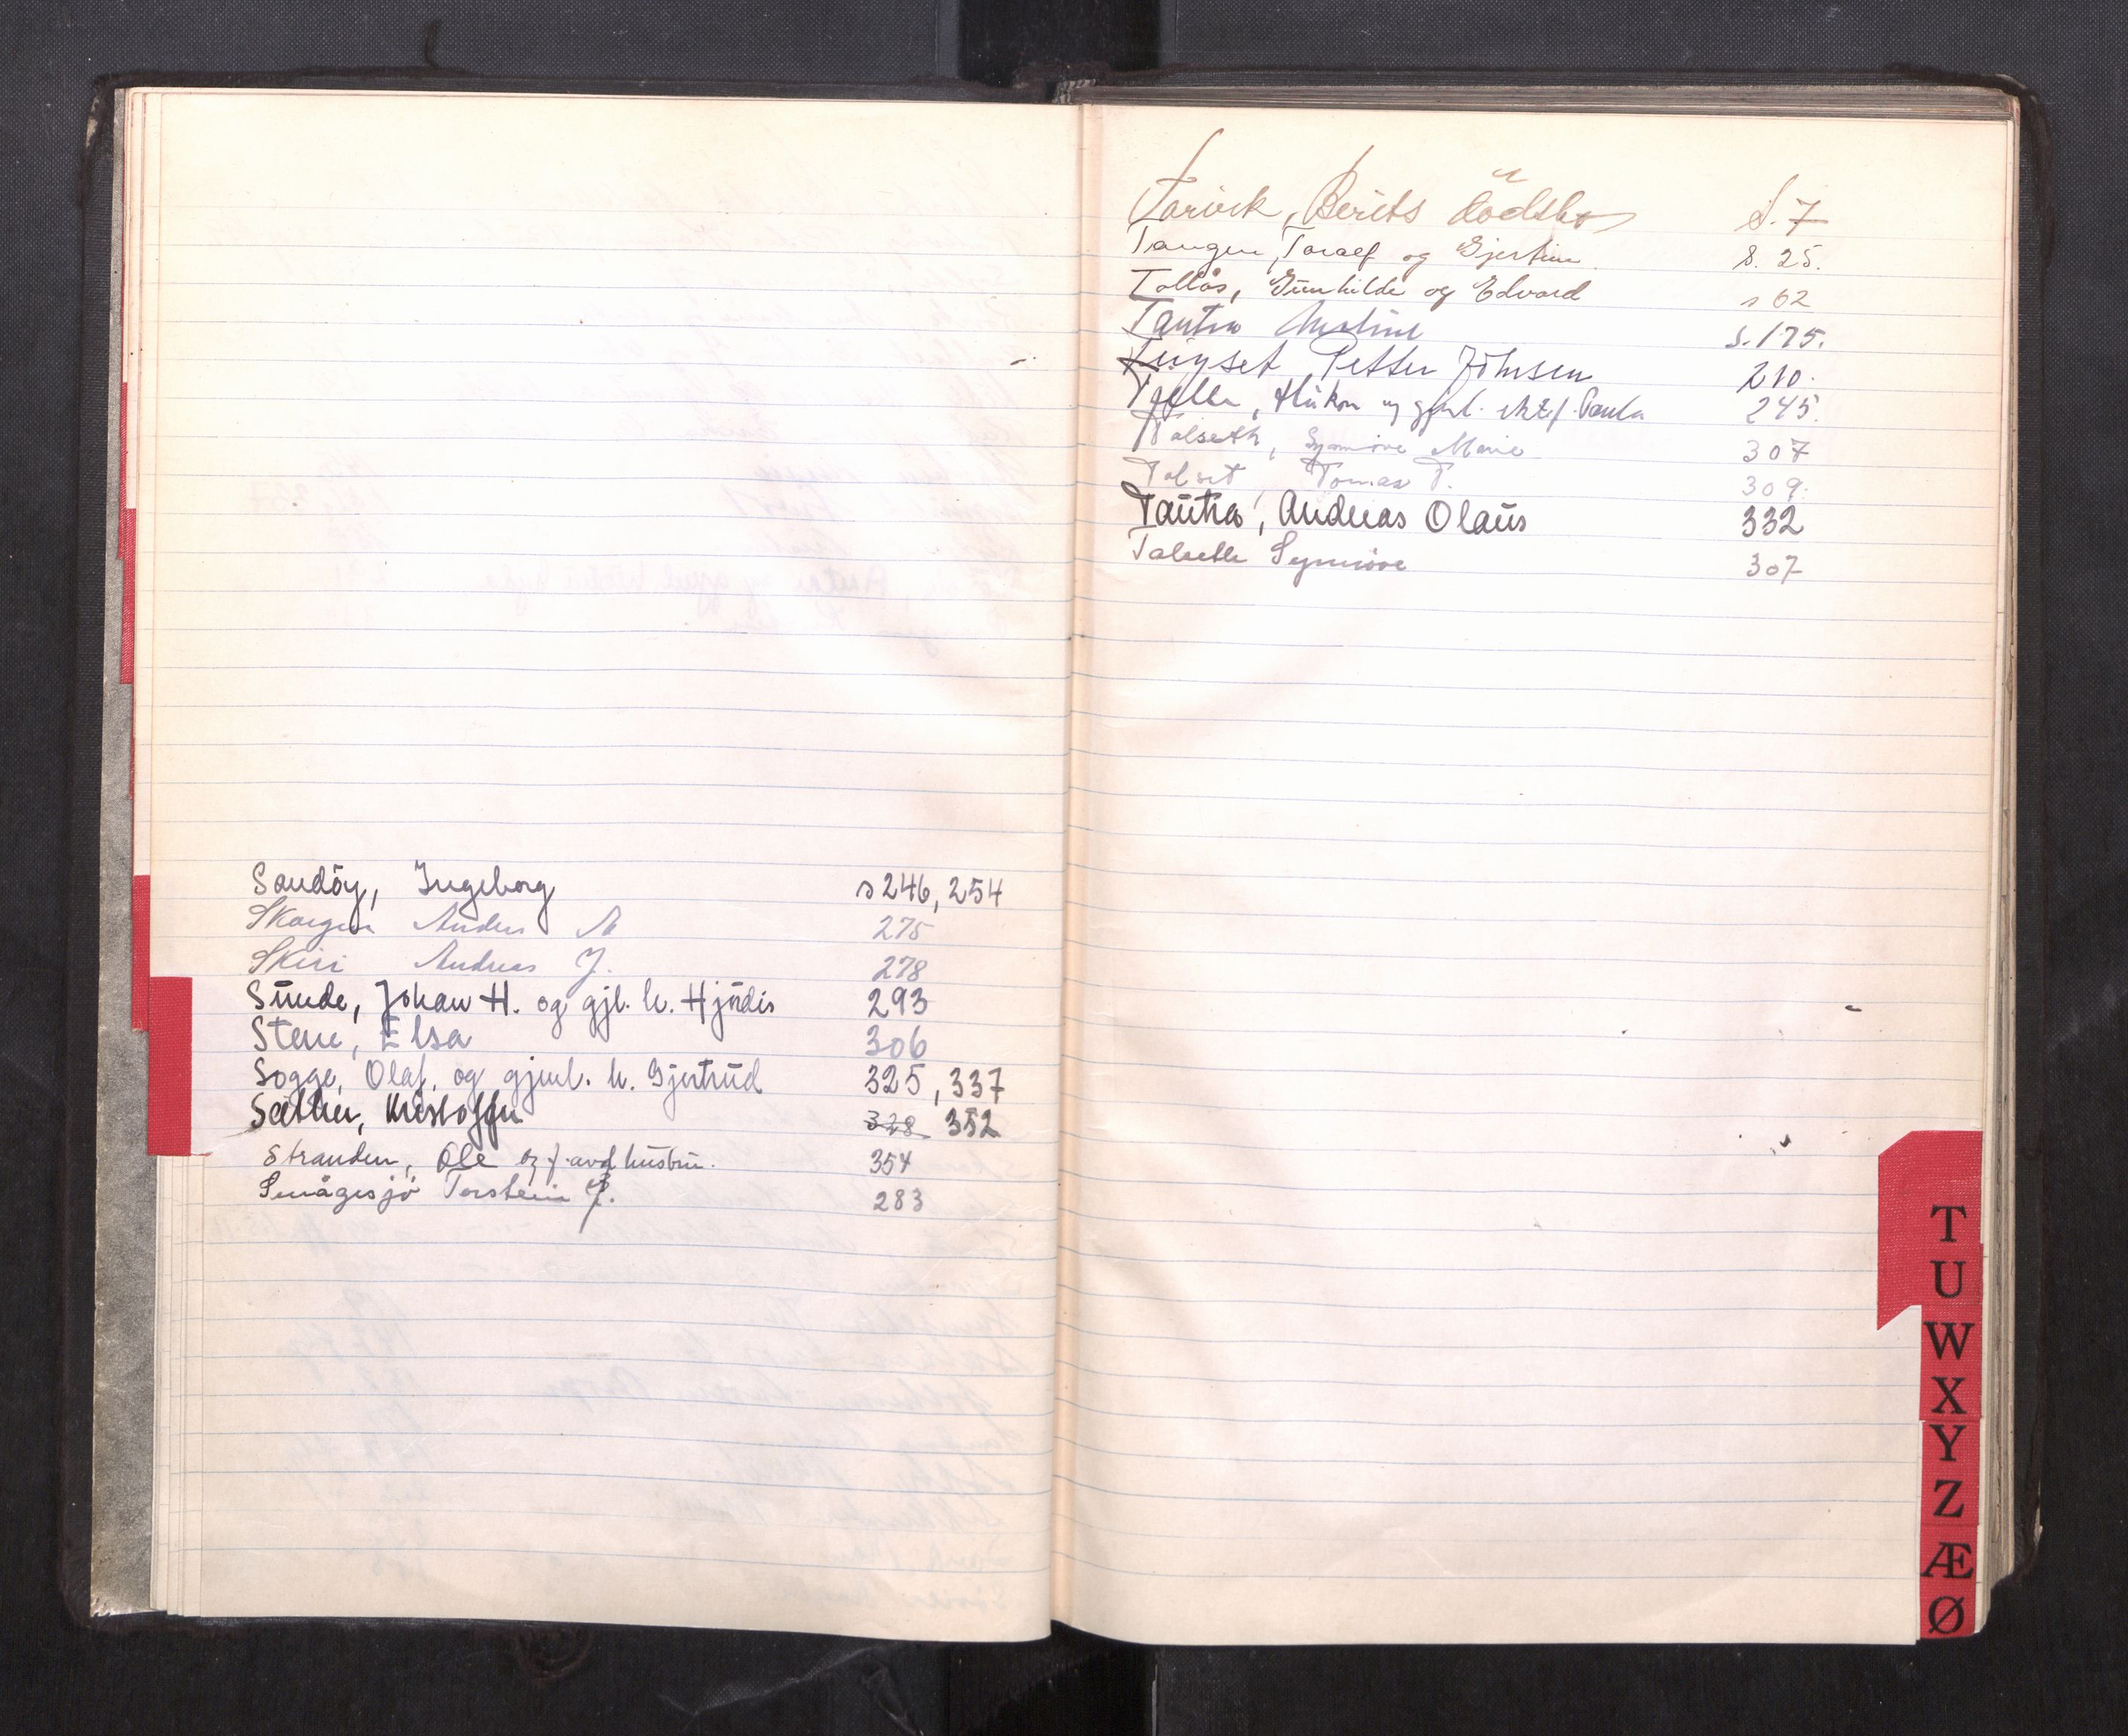 Sandöy, Ingeborg s 246, 254
Skorgen Anders M 275
Skiri Andreas J. 278
Sunde, Johan H. og gjl. h. Hjördis 293
Stene, Elsa 306
Sogge, Olaf. og gjenl. h. Gjertrud 325, 337
Sæther, Kristoffer 328 352
Stranden, Ole og f. avd hustru. 354
Smågesjö Torstein J. 283
Torvik, Berits dödsbo S. 7
Tangen, Toralf og Gjertine s. 25.
Tollås, Gunhilde og Edvard s 62
Tautra s. 175.
Petter Johnsen 210.
Tjelle, Håkon og gjenl. Paula 245.
Talseth, Synnöve Marie 307
Talset Tomas T. 309.
Tautra, Andreas Olaus 332
Talseth Synnöve 307
T
U
W
X
Y
Z
Æ
Ø